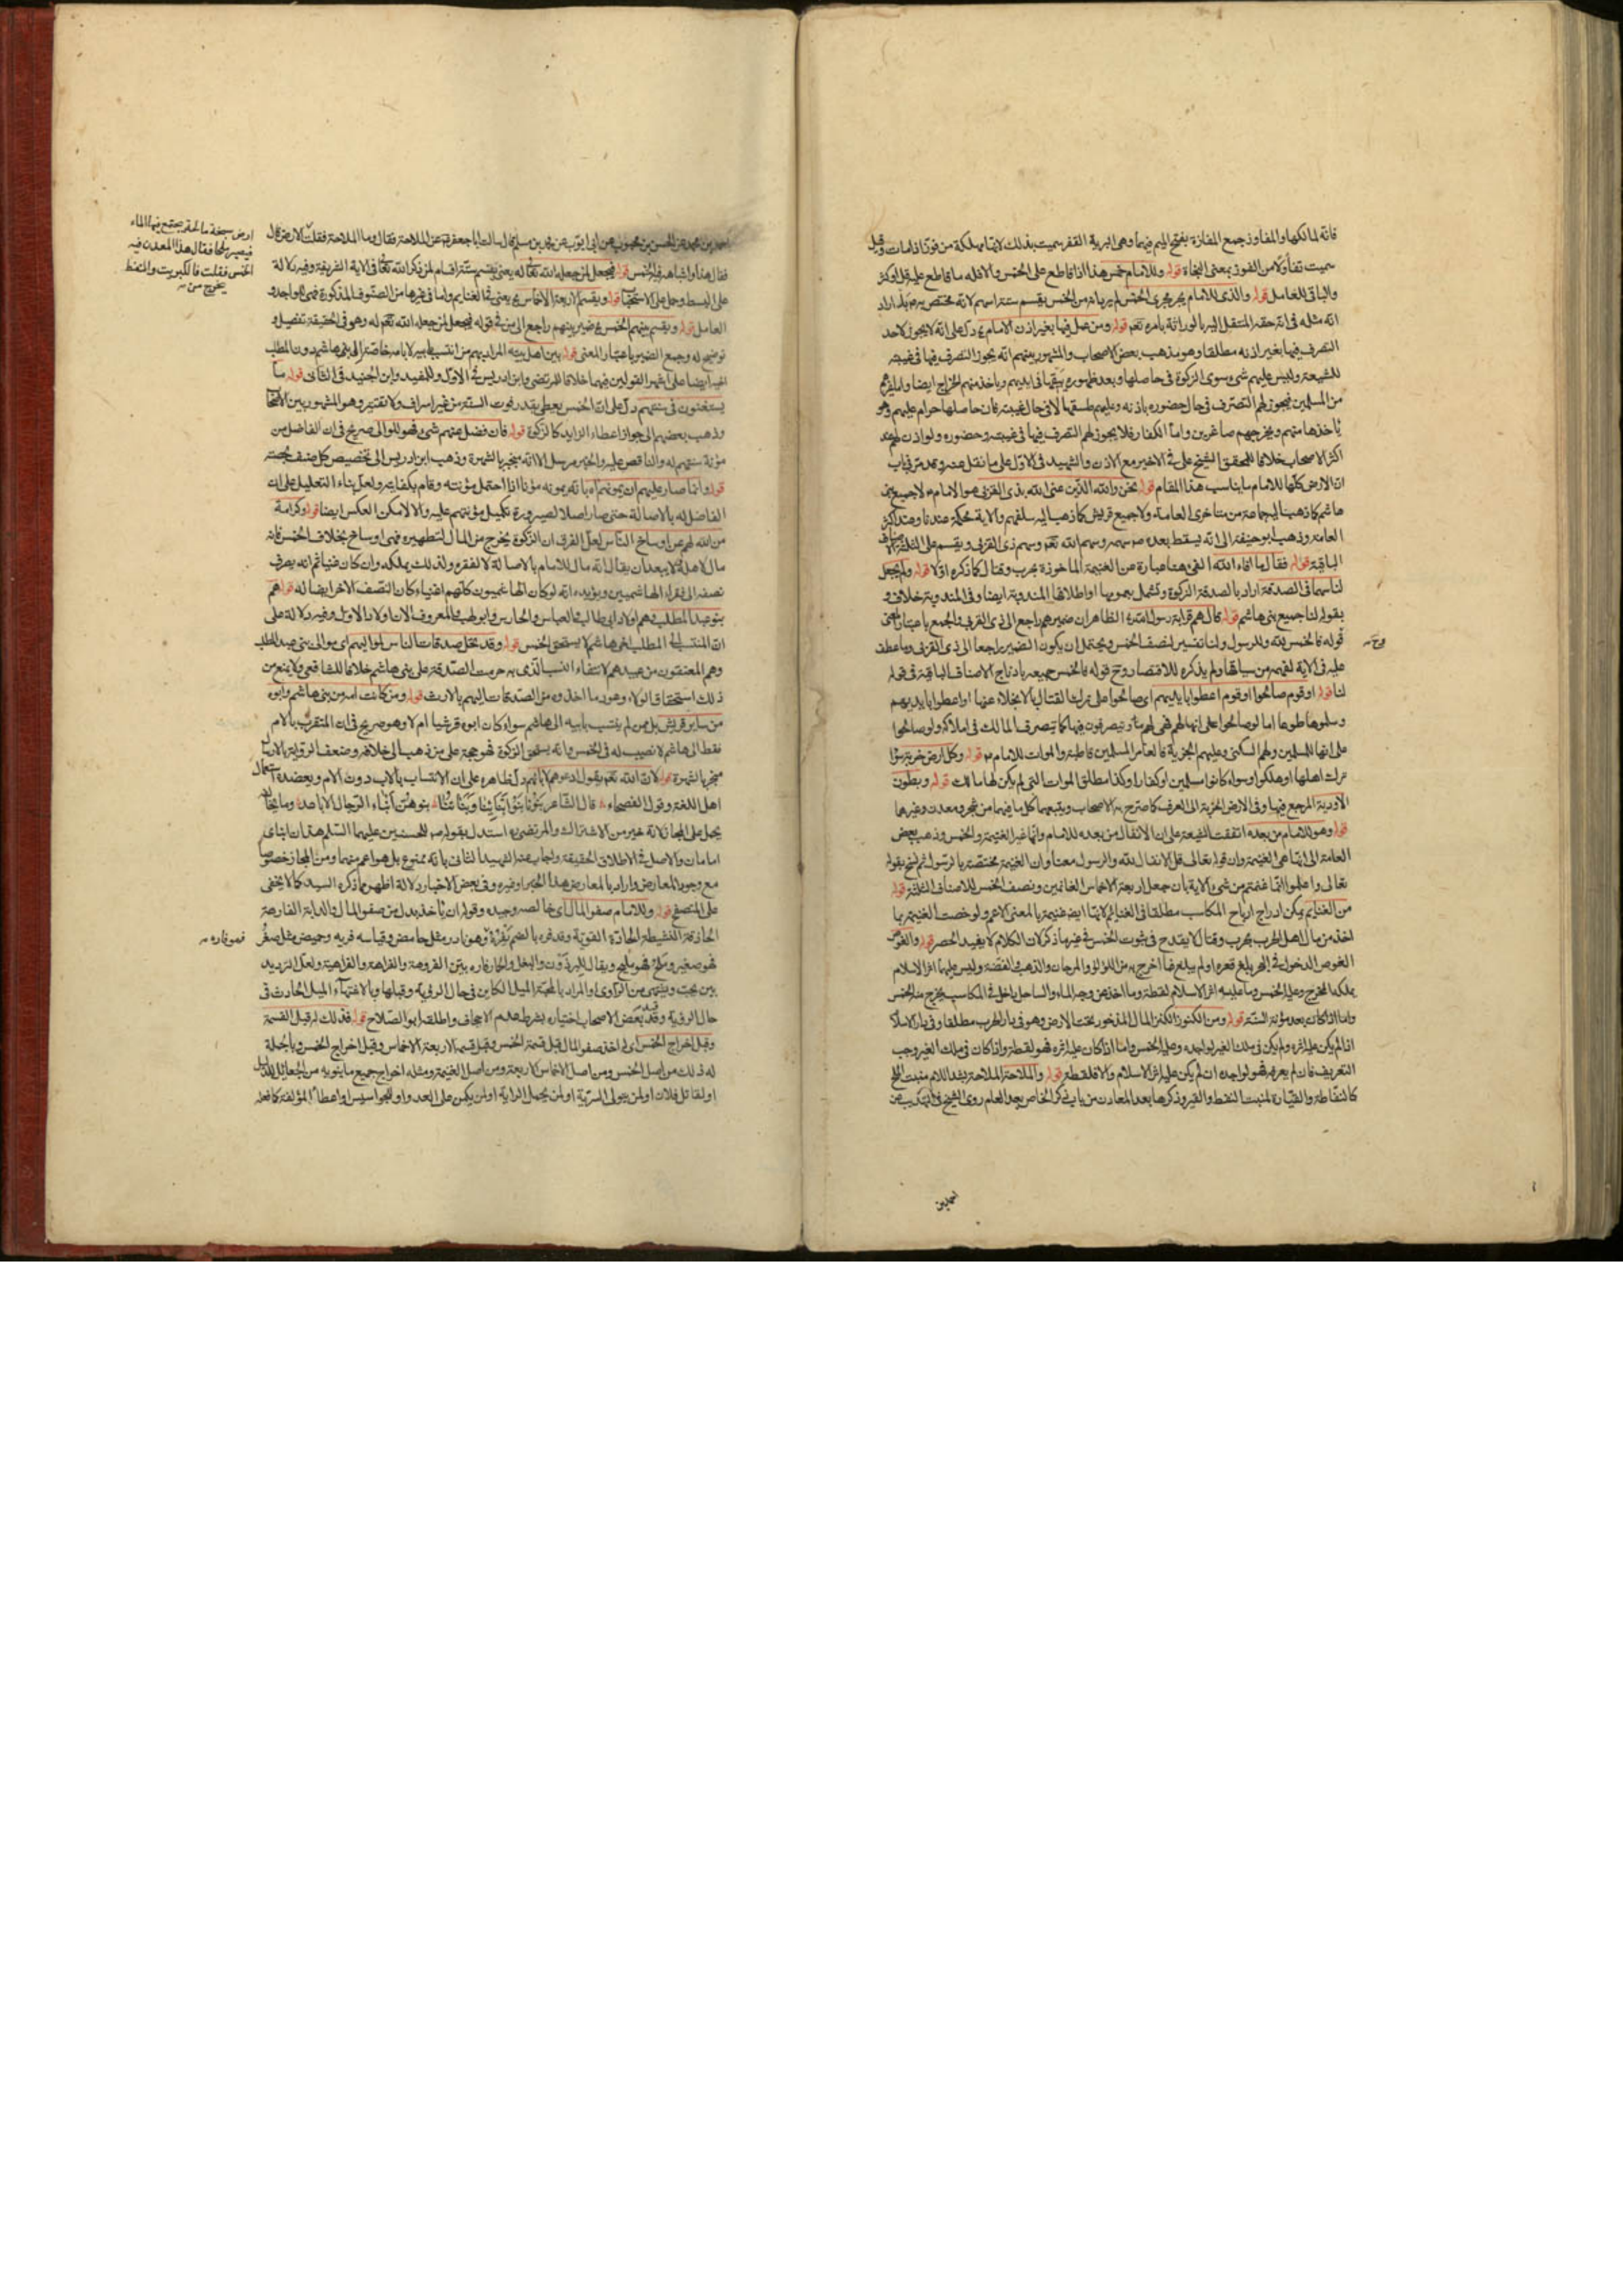 فانه لمالكها والمفاوز جمع المفازة بفتح الميم فيهما وهى البرية القفر سميت بذلك لانها مهلكة من فوز اذا مات وقيل
سميت تفاؤلا من الفوز بمعنى النجاة قوله وللامام خمس هذا اذا قاطع على الخمس والا فله ما قاطع عليه قل او كثر
والباقى للعامل قوله والذى للامام يجرى مجرى الخمس لم يرد انه من الخمس يقسم ستة اسهم لانه مختص به بل اراد
انه مثله فى انه حقه المنتقل اليه بالوراثة بامره تعم قوله ومن عمل فيها بغير اذن الامام ع دل على انه لا يجوز لاحد
التصرف فيها بغير اذنه مطلقا وهو مذهب بعض الاصحاب والمشهور بينهم انه يجوز التصرف فيها فى غيبته
للشيعة وليس عليهم شىء سوى الزكوة فى حاصلها وبعد ظهوره يبقيها فى ايديهم وياخذ منهم الخراج ايضا واما غيرهم
من المسلمين فيجوز لهم التصرف فى حال حضوره باذنه وعليهم طسقها لا فى حال غيبته فان حاصلها حرام عليهم وهو
ياخذها منهم ويخرجهم صاغرين واما الكفار فلا يجوز لهم التصرف فيها فى غيبته وحضوره ولو اذن لهم عند
اكثر الاصحاب خلافا للمحقق الشيخ على فى الاخير مع الاذن والشهيد فى الاول على ما نقل عنه وقد مر فى باب
ان الارض كلها للامام ما يناسب هذا المقام قوله نحن والله الذين عنى الله بذى القربى هو الامام لا جميع بنى
هاشم كما ذهب اليه جماعة من متاخرى العامة ولا جميع قريش كما ذهب اليه سلفهم والاية محكمة عندنا وعند اكثر
العامة وذهب ابو حنيفة الى انه يسقط بعده ص سهمه وسهم الله تعم وسهم ذى القربى ويقسم على الثلثة
الباقية قوله فقال ما افاء الله الفىء هنا عبارة عن الغنيمة الماخوذة بحرب وقتال كما ذكره اولا قوله ولم يجعل
لنا سهما فى الصدقة اراد بالصدقة الزكوة وتشمل بعمومها او اطلاقها المندوبة ايضا وفى المندوبة خلاف و
بقوله لنا جميع بنى هاشم قوله قال هم قرابة رسول الله الظاهر ان ضميرهم راجع الى ذى القربى والجمع باعتبار المعنى
قوله فالخمس لله وللرسول ولنا تفسير لنصف الخمس ويحتمل ان يكون الضمير راجعا الى ذى القربى وما عطف
عليه فى الاية لفهمه من سياقها ولم يذكره للاقتصار وح قوله فالخمس جميعه بادراج الاصناف الباقية فى قوله
لنا قوله او قوم صالحوا او قوم اعطوا بايديهم اى صالحوا على ترك القتال بالانجلاء عنها او اعطوا بايديهم
وسلموها طوعا اما لو صالحوا على انها لهم فهى لهم يتصرفون فيها كما يتصرف المالك فى املاكه ولو صالحوا
على انها للمسلمين ولهم السكنى وعليهم الجزية فالعامر للمسلمين قاطبة والموات للامام قوله وكل ارض خربة سواء
ترك اهلها او هلكوا وسواء كانوا مسلمين او كفارا وكذا مطلق الموات التى لم يكن لها مالك قوله وبطون
الاودية المرجع فيها وفى الارض الخربة الى العرف كما صرح به الاصحاب ويتبعهما كل ما فيهما من شجر ومعدن وغيرهما
قوله وهو للامام من بعده اتفقت الشيعة على ان الانفال من بعده للامام وانها غير الغنيمة والخمس وذهب بعض
العامة الى انها هى الغنيمة وان قوله تعالى قل الانفال لله والرسول معناه ان الغنيمة مختصة بالرسول ثم نسخ بقوله
تعالى واعلموا انما غنمتم من شىء الاية بان جعل اربعة الاخماس للغانمين ونصف الخمس للاصناف الثلثة قوله
من الغنايم يمكن ادراج ارباح المكاسب مطلقا فى الغنايم لانها ايضا غنيمة بالمعنى الاعم ولو خصت الغنيمة بما
اخذ من مال اهل الحرب بحرب وقتال لا يقدح فى ثبوت الخمس فى غيرها ذكر لان الكلام لا يفيد الحصر قوله والغوص
الغوص الدخول فى البحر يبلغ قعره او لم يبلغ فما اخرج به من اللؤلؤ والمرجان والذهب والفضة وليس عليهما اثر الاسلام
يملكه المخرج وعليه الخمس وما عليه اثر الاسلام لقطة وما اخذ من وجه الماء والساحل داخل فى المكاسب يخرج منه الخمس
واما اذا كان بعد مؤنة السنة قوله ومن الكنوز الكنز المال المذخور تحت الارض وهو فى دار الحرب مطلقا وفى دار الاسلام
اذا لم يكن عليه اثره ولم يكن فى ملك الغير لواجده وعليه الخمس واما اذا كان عليه اثره فهو لقطة واذا كان فى ملك الغير وجب
التعريف فان لم يعرفه فهو لواجده ان لم يكن عليه اثر الاسلام والا فلقطة قوله والملاحة الملاحة بشد اللام منبت الملح
كالنفاطة والقيارة لمنبت النفط والقير وذكرها بعد المعادن من باب ذكر الخاص بعد العام روى الشيخ فى التهذيب عن
احمد بن
احمد بن محمد عن الحسن بن محبوب عن ابى ايوب عن محمد بن مسلم قال سالت ابا جعفر عن الملاحة فقال وما الملاحة فقلت الارض قال
ارض سبخة مالحة يجتمع فيها الماء
فيصير ملحا فقال هذا المعدن فيه
الخمس فقلت فالكبريت والنفط
يخرج من
فقال هذا واشباهه فيه الخمس قوله فجعل لمن جعله الله تعالى له يعنى يقسم ستة اقسام لمن ذكر الله تعالى فى الاية الشريفة وفيه دلالة
على البسط وحمل على الاستحباب قوله ويقسم الاربعة الاخماس يعنى فى الغنايم واما فى غيرها من الصنوف المذكورة فهى للواجد و
العامل قوله ويقسم بينهم الخمس ضمير بينهم راجع الى من فى قوله فجعل لمن جعله الله تعم له وهو فى الحقيقة تفصيل و
توضيح له وجمع الضمير باعتبار المعنى قوله بين اهل بيته المراد بهم من انتسب بابيه لا بامه خاصة الى بنى هاشم دون المطلب
يستغنون فى سنتهم دل على ان الخمس يعطى بقدر قوت السنة من غير اسراف ولا تقتير وهو المشهور بين الاصحاب
وذهب بعضهم الى جواز اعطاء الزايد كالزكوة قوله فان فضل عنهم شىء فهو للوالى صريح فى ان الفاضل من
مؤنة سنتهم له والناقص عليه والخبر مرسل الا انه منجبر بالشهرة وذهب ابن ادريس الى تخصيص كل صنف بحصته
من الله لهم عن اوساخ الناس لعل الفرق ان الزكوة يخرج من المال لتطهيره فهى اوساخ بخلاف الخمس فانه
نصفه الى فقراء الهاشميين ويؤيده انه لو كان الهاشميون كلهم اغنياء كان النصف الاخر ايضا له قوله هم
بنو عبد المطلب هم اولاد ابى طالب والعباس والحارث وابو لهب والمعروف الان اولاد الاول وفيه دلالة على
ان المنتسب الى المطلب اخى هاشم لا يستحق الخمس قوله وقد تحل صدقات الناس لمواليهم اى موالى بنى عبد المطلب
وهم المعتقون من عبيدهم لانتفاء النسب الذى به حرمت الصدقة على بنى هاشم خلافا للشافعى ولا يمنع من
ذلك استحقاق الولاء وهو رد ما اخذوه من الصدقات اليهم بالارث قوله ومن كانت امه من بنى هاشم وابوه
من ساير قريش بل من لم ينتسب بابيه الى هاشم سواء كان ابوه قرشيا ام لا وهو صريح فى ان المتقرب بالام
فقط الى هاشم لا نصيب له فى الخمس وانه يستحق الزكوة فهو حجة على من ذهب الى خلافه وضعف الرواية بالارسال
منجبر بالشهرة قوله لان الله تعم يقول ادعوهم لابائهم دل ظاهره على ان الانتساب بالاب دون الام ويعضده استعمال
اهل اللغة وقول الفصحاء قال الشاعر بنونا بنو ابنائنا وبناتنا بنوهن ابناء الرجال الاباعد وما يخالفه
يحمل على المجاز لانه خير من الاشتراك والمرتضى ره استدل بقوله ص للحسنين عليهما السلم هذان ابناى
امامان والاصل فى الاطلاق الحقيقة واجاب عنه الشهيد الثانى بانه ممنوع بل هو اعم منهما ومن المجاز خصوصا
مع وجود المعارض واراد بالمعارض هذا الخبر وغيره وفى بعض الاخبار دلالة اظهر مما ذكره السيد كما لا يخفى
على المتصفح قوله وللامام صفو المال اى خالصه وجيده وقوله ان ياخذ بدل من صفو المال والدابة الفارهة
الحاذقة النشيطة الحادة القوية وقد فره بالضم يفره وهو نادر مثل حامض وقياسه فريه وحميض مثل صغر
فهو فاره
فهو صغير وملح فهو مليح ويقال للبرذون والبغل والحمار فاره بين الفروهة والفراهة والفراهية ولعل الترديد
بين يحب ويشتهى من الراوى او المراد بالمحبة الميل الكاين فى حال الرؤية وقبلها وبالاشتهاء الميل الحادث فى
حال الرؤية وقيد بعض الاصحاب اختياره بشرط عدم الاجحاف واطلقه ابو الصلاح قوله فذلك له قبل القسمة
وقبل اخراج الخمس اى له اخذ صفو المال قبل قسمة الخمس وقبل قسمة الاربعة الاخماس وقبل اخراج الخمس وبالجملة
له ذلك من اصل الخمس ومن اصل الاخماس الاربعة ومن اصل الغنيمة ومثله اخراج جميع ما ينوبه من الجعايل للدليل
او لقاتل فلان او لمن يتولى السرية او لمن يحمل الراية او لمن يكمن على العدو او للجواسيس او اعطاء المؤلفة كما فعله